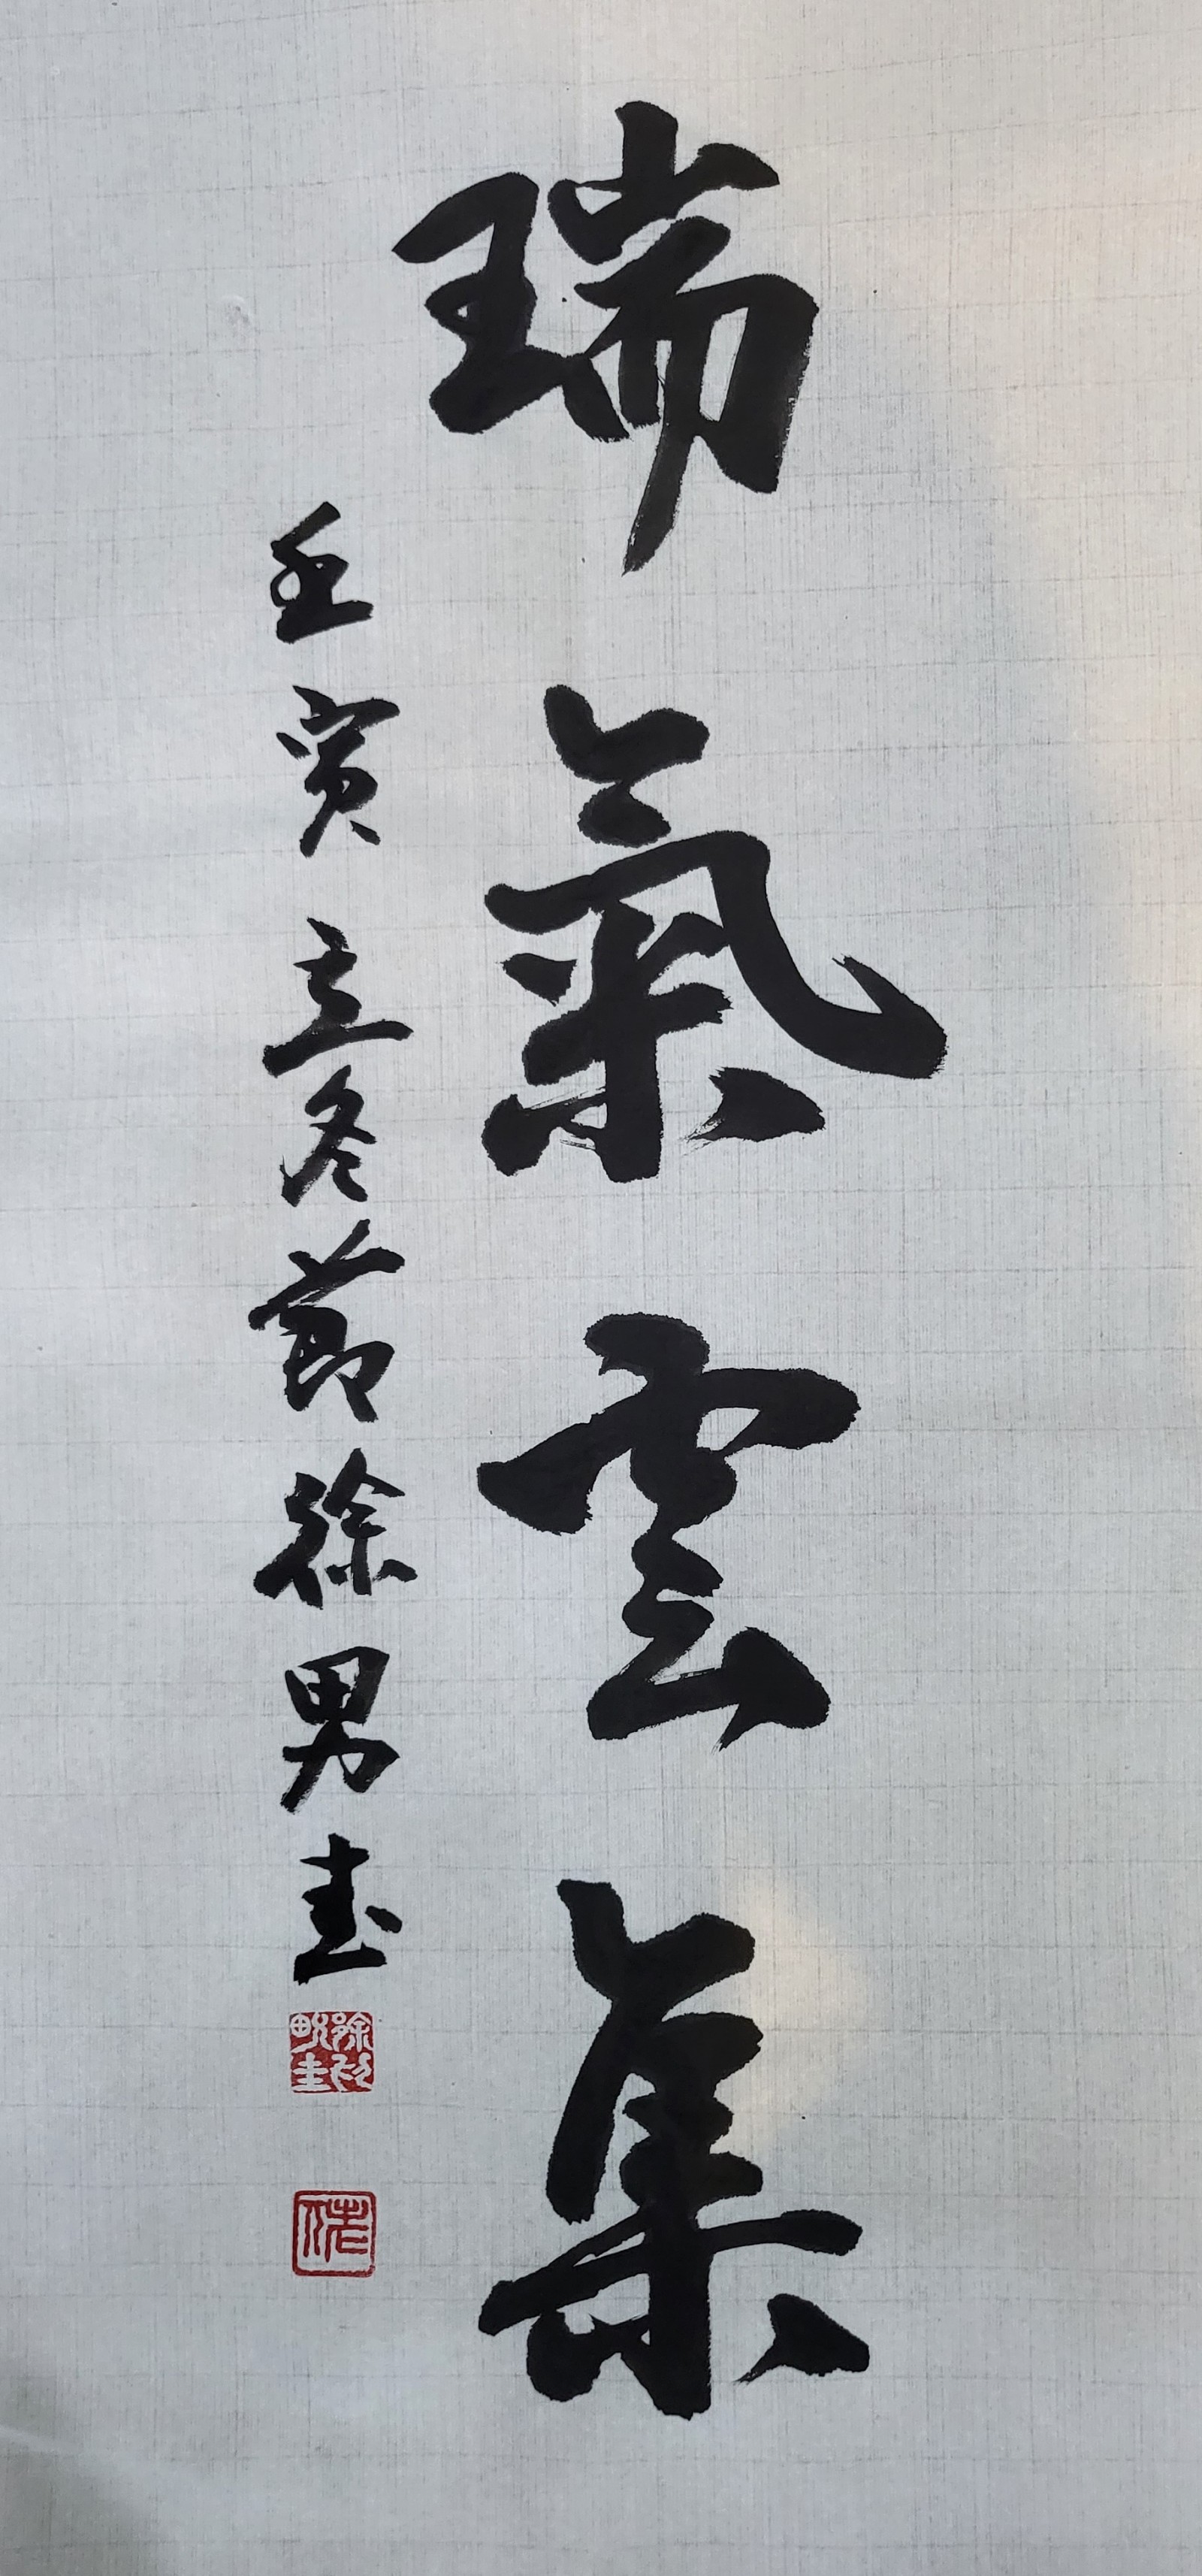 瑞氣雲集
壬寅立冬節徐男書